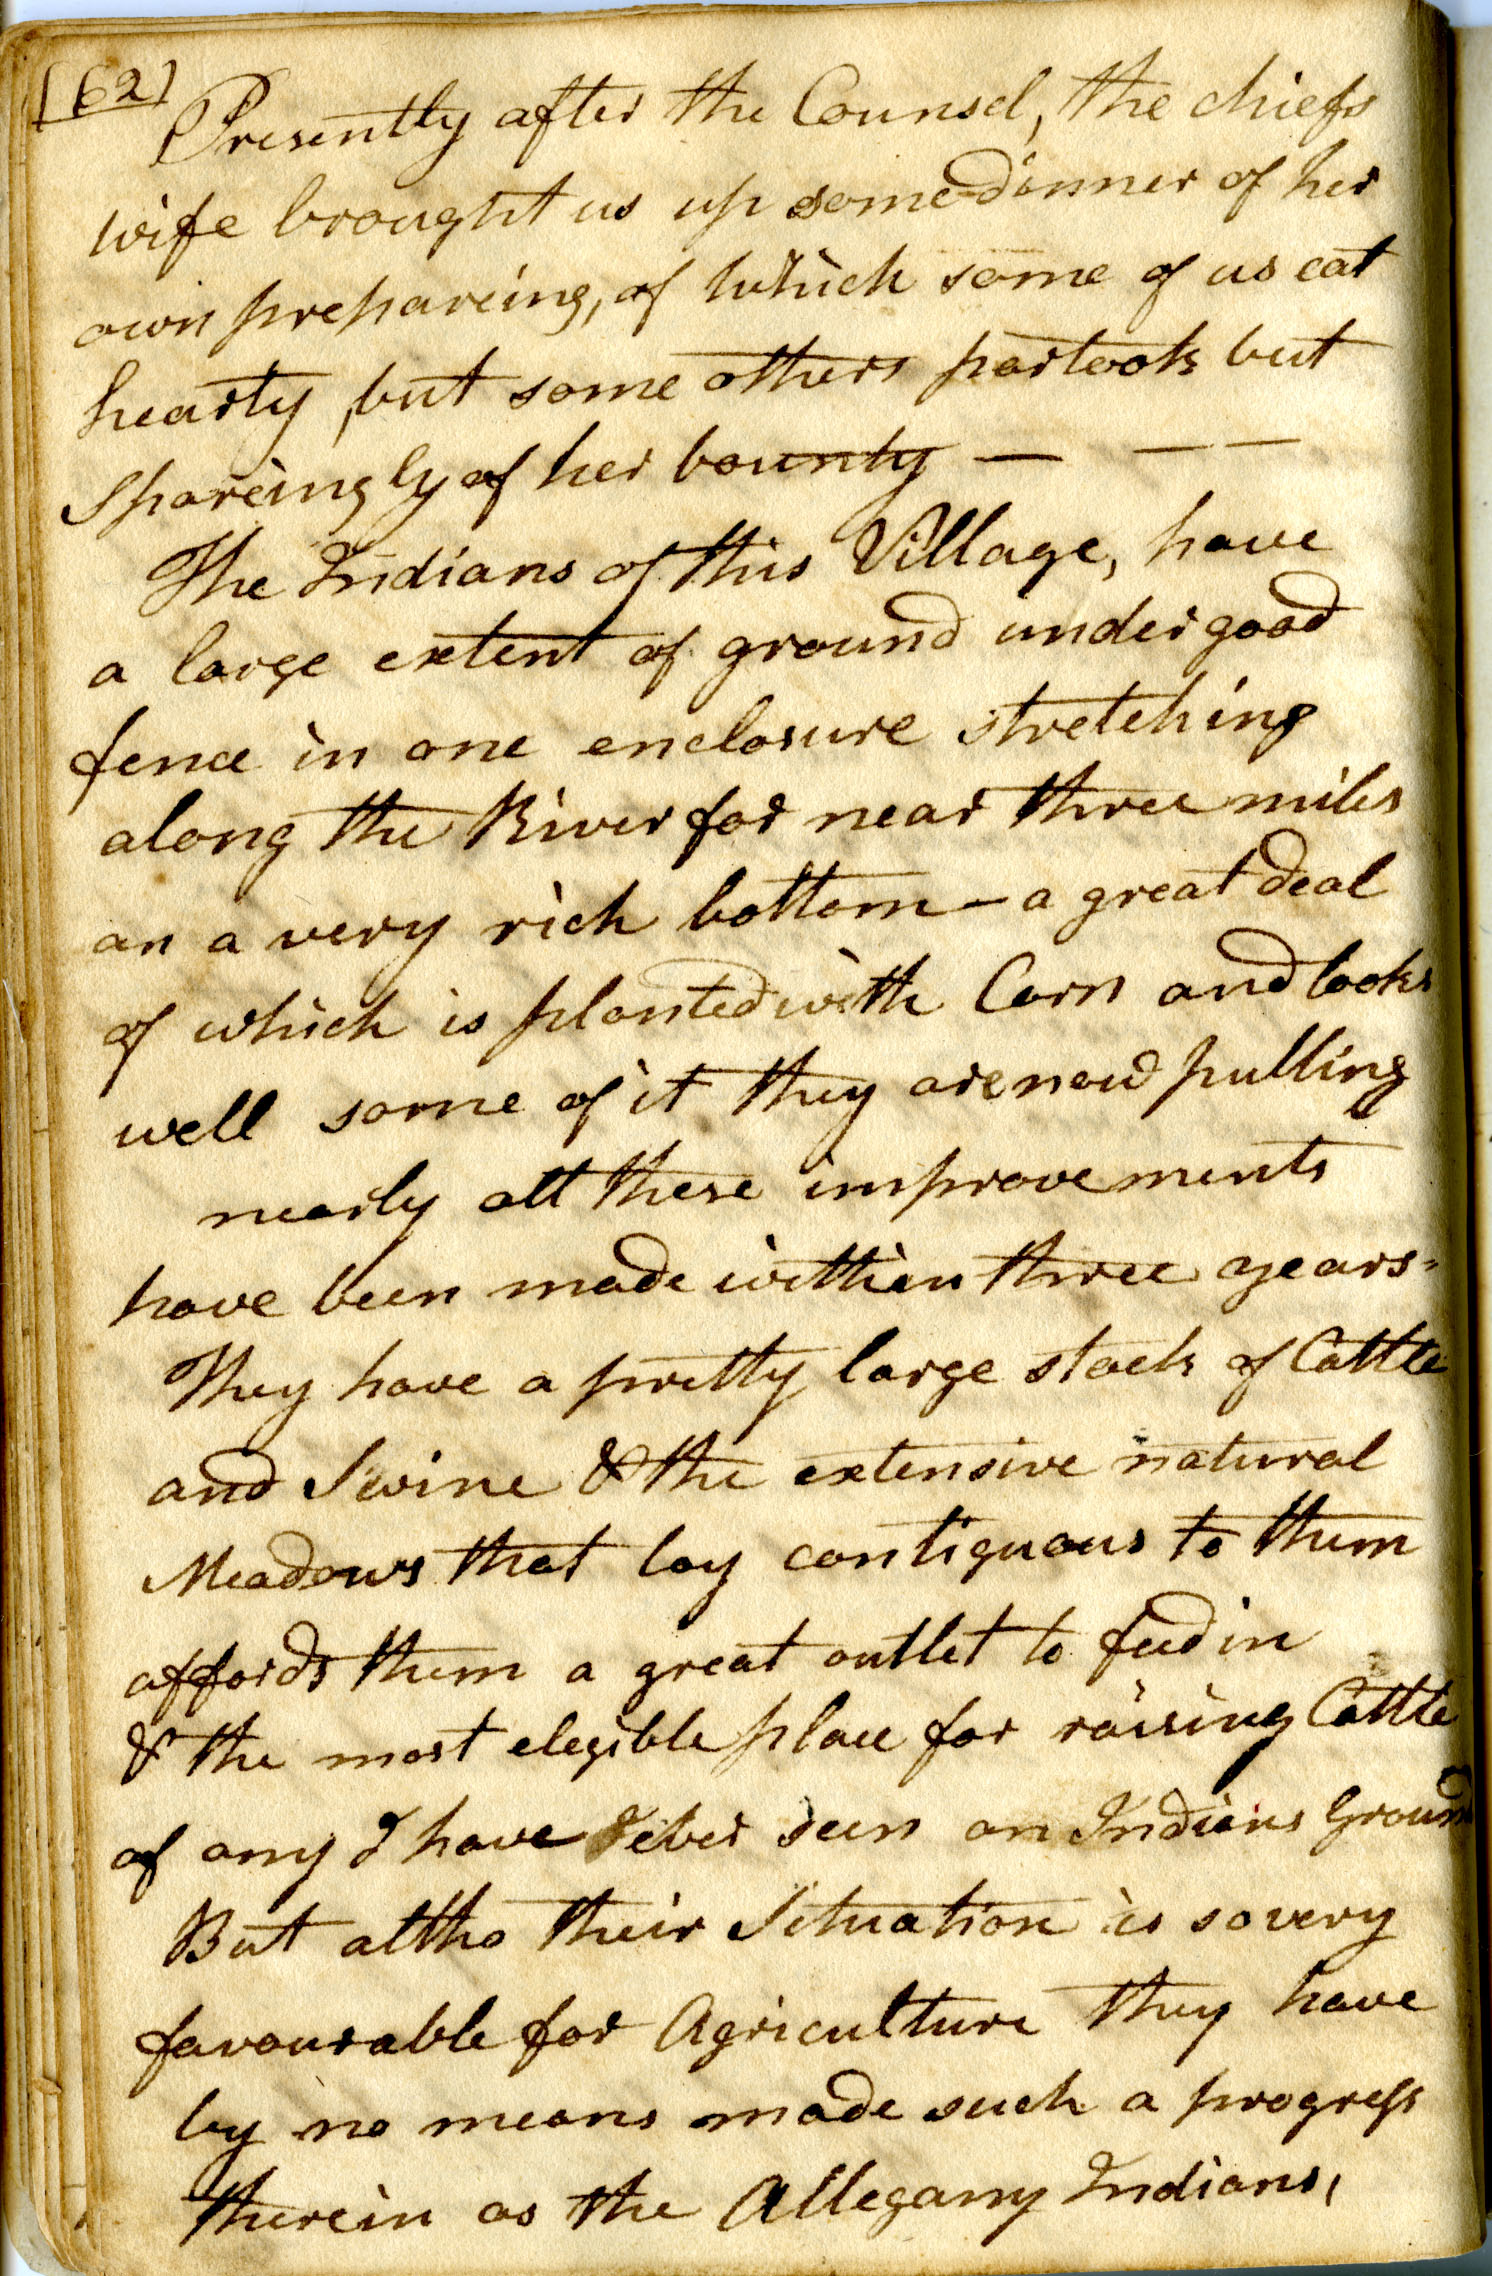 [62]
Presently after the Counsel, the chiefs
wife brought us up some dinner of her
own prepareing, of which some of us eat
hearty, but some others partook but
Spareingly of her bounty — — —
The Indians of this Village, have
a large extent of ground under good
fence in one enclosure stretching
along the River for near three miles
on a very rich bottom — a great deal
of which is planted with Corn and looks
well some of it they are now pulling
nearly all these improvements
have been made within three years -
They have a pretty large stock of Cattle
and Swine & the extensive natural
Meadows that lay contiguous to them
affords them a great outlet to feed in
& the most elegible place for raising Cattle
of any I have ever seen on Indians Ground
But altho their Situation is so very
favourable for Agriculture they have
by no means made such a progress
therein as the Allegany Indians,